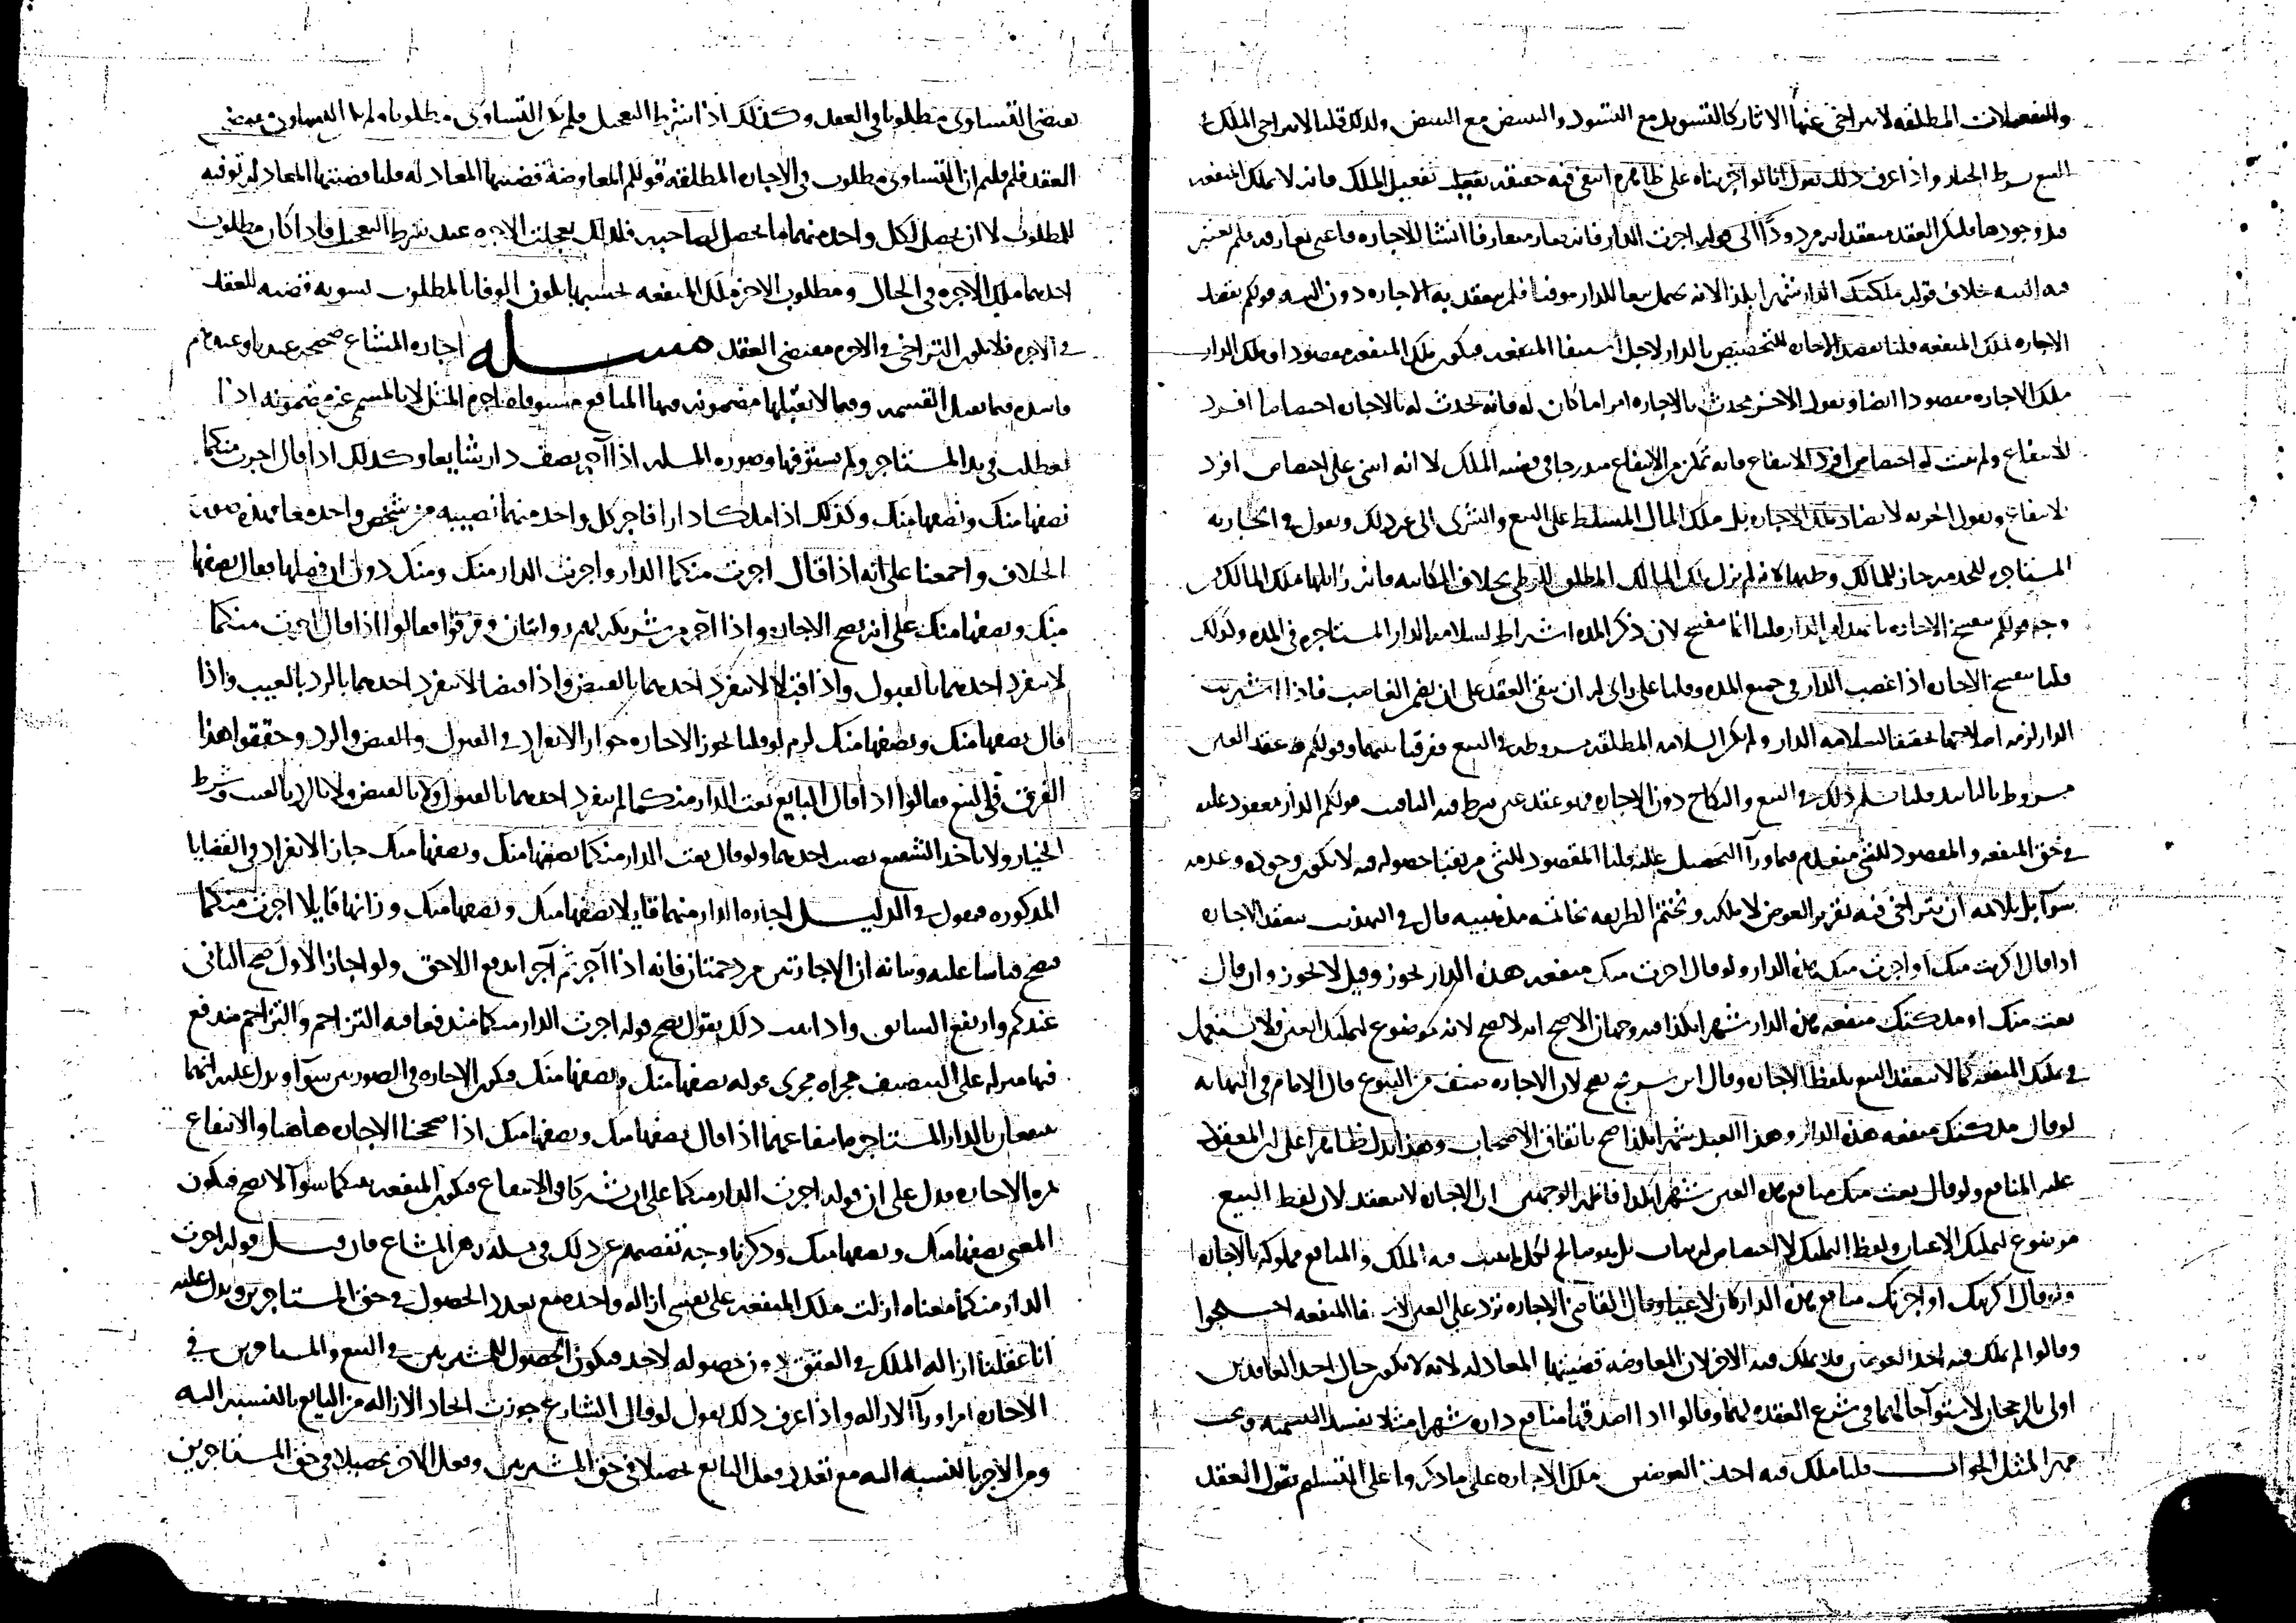 والتفعيلات المطلقه لا يتراخى عنها الاثار كالتسويد مع التسود والتبيض مع التبيض ولذلك قلنا لا يتراخى الملك في
البيع بشرط الخيار واذا عرف ذلك نقول انا لو اجريناه على ظاهره انتفى فيه حقيقه تفعيل الملك فانه لا يملك المنفعه
قبل وجودها فليكن العقد منعقدا مردودا الى قوله اجرت الدار فانه صار متعارفا انشا للاجاره فلم يعتبر
فيه النيه خلاف قوله ملكتك الدار شهرا بكذا لانه يحتمل بيعا للدار موقتا فلم ينعقد به الاجاره دون النيه قولكم يقصد
الاجاره لملك المنفعه قلنا يقصد الاجاره للتخصيص بالدار لاجل استيفا المنفعه فيكون ملك المنفعه مقصودا وملك الدار
ملك الاجاره مقصودا ايضا ونقول الاخر يحدث بالاجاره امرا ما كان له فانه يحدث له بالاجاره اختصاصا افرد
الانتفاع ولم يثبت له اختصاص افرد الانتفاع فانه تمكن من الانتفاع مندرجا في قضيه الملك لا انه انبنى على اختصاص افرد
الانتفاع ونقول الحريه لا يضاد ملك الاجاره بل ملك المال المسلط على البيع والشرى الى غير ذلك ونقول في الجاريه
المستاجره للخدمه جاز للمالك وطيها لانه لم يزل ملك المالك المطلق للوطى بخلاف الكتابه فانه زايلها ملك المالك من
وجه قولكم ينفسخ الاجاره بانهدام الدار قلنا انما ينفسخ لان ذكر المده اشتراط لسلامه الدار المستاجره في المده ولذلك
قلنا ينفسخ الاجاره اذا غصب الدار في جميع المده وقلنا على راى له ان يبقى العقد على ان يضمن الغاصب فاذا اشتريت
الدار لزمه اصلاحها تحقيقا لسلامه الدار ولم يكن السلامه المطلقه مشروطه في البيع ففرقنا بينهما وقولكم هو عقد العين
مشروط بالتابيد قلنا نسلم ذلك في البيع والنكاح دون الاجاره فهو عقد عين شرط فيه التاقيت قولكم الدار معقود عليه
في حق المنفعه والمقصود للشى منعدم فيما ورا التحصيل عليه قلنا المقصود للشى مرتقبا حصوله فيه لا يكون وجوده وعدمه
سوا بل يلائمه ان يتراخى فيه تقرير العوض لا ملكه ونختتم الطريقه بخاتمه مذهبيه قال في التهذيب ينعقد الاجاره
اذا قال اكريت منك او اجرت منك هذه الدار ولو قال اجرت منك منفعه هذه الدار يجوز وقيل لا يجوز وان قال
بعت منك او ملكتك منفعه هذه الدار شهرا بكذا فيه وجهان الاصح انه لا يصح لانه موضوع لتمليك العين فلا يستعمل
في تمليك المنفعه كما لا ينعقد البيع بلفظ الاجاره وقال ابن سريج يصح لان الاجاره صنف من البيوع قال الامام في النهايه
لو قال ملكتك منفعه هذه الدار وهذا العبد شهرا بكذا صح باتفاق الاصحاب وهذا يدل ظاهرا على ان المعقود
عليه المنافع ولو قال بعت منك منافع هذه العين شهرا بكذا فاظهر الوجهين ان الاجاره لا ينعقد لان لفظ البيع
موضوع لتمليك الاعيان ولفظ التمليك لا اختصاص له بل هو صالح لكل ما يثبت فيه الملك والمنافع مملوكه بالاجاره
ولو قال اكريتك او اجرتك منافع هذه الدار كان لاغيا وقال القاضي الاجاره ترد على العين المنفعه احتجوا
وقالوا لم يملك فيه احد العوضين فلا يملك فيه الاخر لان المعاوضه قضيتها المعادله لانه لا يكون حال احد العاقدين
اولى بالرجحان لاستوا حالهما في شرع العقد لهما وقالوا اذا اصدقها منافع داره شهرا مثلا يفسد التسميه ويجب
مهر المثل الجواب قلنا ملك فيه احد العوضين ملك الاجاره على ما ذكروا على التسليم نقول العقد
يقتضى التساوى مطلوبا في العقد وكذلك اذا شرط التعجيل فلم يكن التساوى مطلوبا
العقد فلم قلتم ان التساوى مطلوب في الاجاره المطلقه قولكم المعاوضه قضيتها المعادله قلنا قضيتها المعادله توفيه
للمطلوب لا ان يحصل لكل واحد منهما ما يحصل لصاحبه فلذلك تعجلت الاجره عند شرط التعجيل فاذا كان مطلوب
احدهما ملك الاجره في الحال ومطلوب الاخر ملك المنفعه بحسبها يكون الوفا بالمطلوب تسويه قضيه للعقد
في الاجره فلا يكون التراخى في الاجره مقتضى العقد مسله اجاره المشاع صحيحه عندنا وعندهم
فاسده فيما يقبل القسمه وفيما لا يقبلها مضمونه فيها المنافع مستوفاه باجره المثل لا بالمسمى غير مضمونه اذا
تعطلت في يد المستاجر ولم يستوفها وصوره المسله اذا آجر نصف دار شايعا وكذلك اذا قال اجرت منكما
نصفها منك ونصفها منك وكذلك اذا ملكا دارا فاجر كل واحد منهما نصيبه من شخص واحد معا فهذه صورت
الخلاف واجمعنا على انه اذا قال اجرت منكما الدار واجرت الدار منك ومنك دون ان فصلها فقال نصفها
منك ونصفها منك على انه يصح الاجاره واذا آجر من شريكه لهم روايتان وفرقوا فقالوا اذا قال اجرت منكما
لا ينفرد احدهما بالقبول واذا قبلا لا ينفرد احدهما بالقبض واذا قبضا لا ينفرد احدهما بالرد بالعيب واذا
قال نصفها منك ونصفها منك لزم لو قلنا بجواز الاجاره جواز الانفراد في القبول والقبض والرد وحققوا هذا
الفرق في البيع فقالوا اذا قال البايع بعت الدار منكما لم ينفرد احدهما بالقبول ولا بالقبض ولا بالرد بالعيب وشرط
الخيار ولا ياخذ الشفيع نصيب احدهما ولو قال بعت الدار منكما نصفها منك ونصفها منك جاز الانفراد في القضايا
المذكوره فنقول في الدليل اجاره الدار منهما قايلا نصفها منك ونصفها منك وزانها قايلا اجرت منكما
فيصح قياسا عليه وبيانه ان الاجارتين مزدحمتان فانه اذا آجر ثم آجر اندفع اللاحق ولو اجاز الاول صح الثانى
عندكم وارتفع السابق واذا ثبت ذلك نقول يصح قوله اجرت الدار منكما مندفعا فيه التزاحم والتزاحم مندفع
فيها منزله على التنصيف مجراه مجرى قوله نصفها منك ونصفها منك فيكون الاجاره في الصورتين سوا ويدل عليه انهما
ينتفعان بالدار المستاجره ما انتفاعهما اذا قال نصفها منك ونصفها منك اذا صححنا الاجاره هاهنا والانتفاع
ثمره الاجاره يدل على ان قوله اجرت الدار منكما على ان تشتركا في الانتفاع فيكون المنفعه بينكما سوا لا يصح فيكون
المعنى نصفها منك ونصفها منك وذكرنا وجه تفصيهم عن ذلك في مسله رهن المشاع فان قيل قوله اجرت
الدار منكما معناه ازلت ملك المنفعه على معنى ازاله واحده مع تعدد الحصول في حق المستاجرين ويدل عليه
انا عقلنا ازاله الملك في العتق دون حصوله لاحد فيكون الحصول للمشتريين في البيع والمستاجرين في
الاجاره امرا ورا الازاله واذا عرف ذلك نقول لو قال الشارع جوزت اتحاد الازاله من البايع بالنسبه اليه
ومن الاجر بالنسبه اليه مع تعدد فعل البايع تحصيلا في حق المشتريين وفعل الاجر تحصيلا في حق المستاجرين